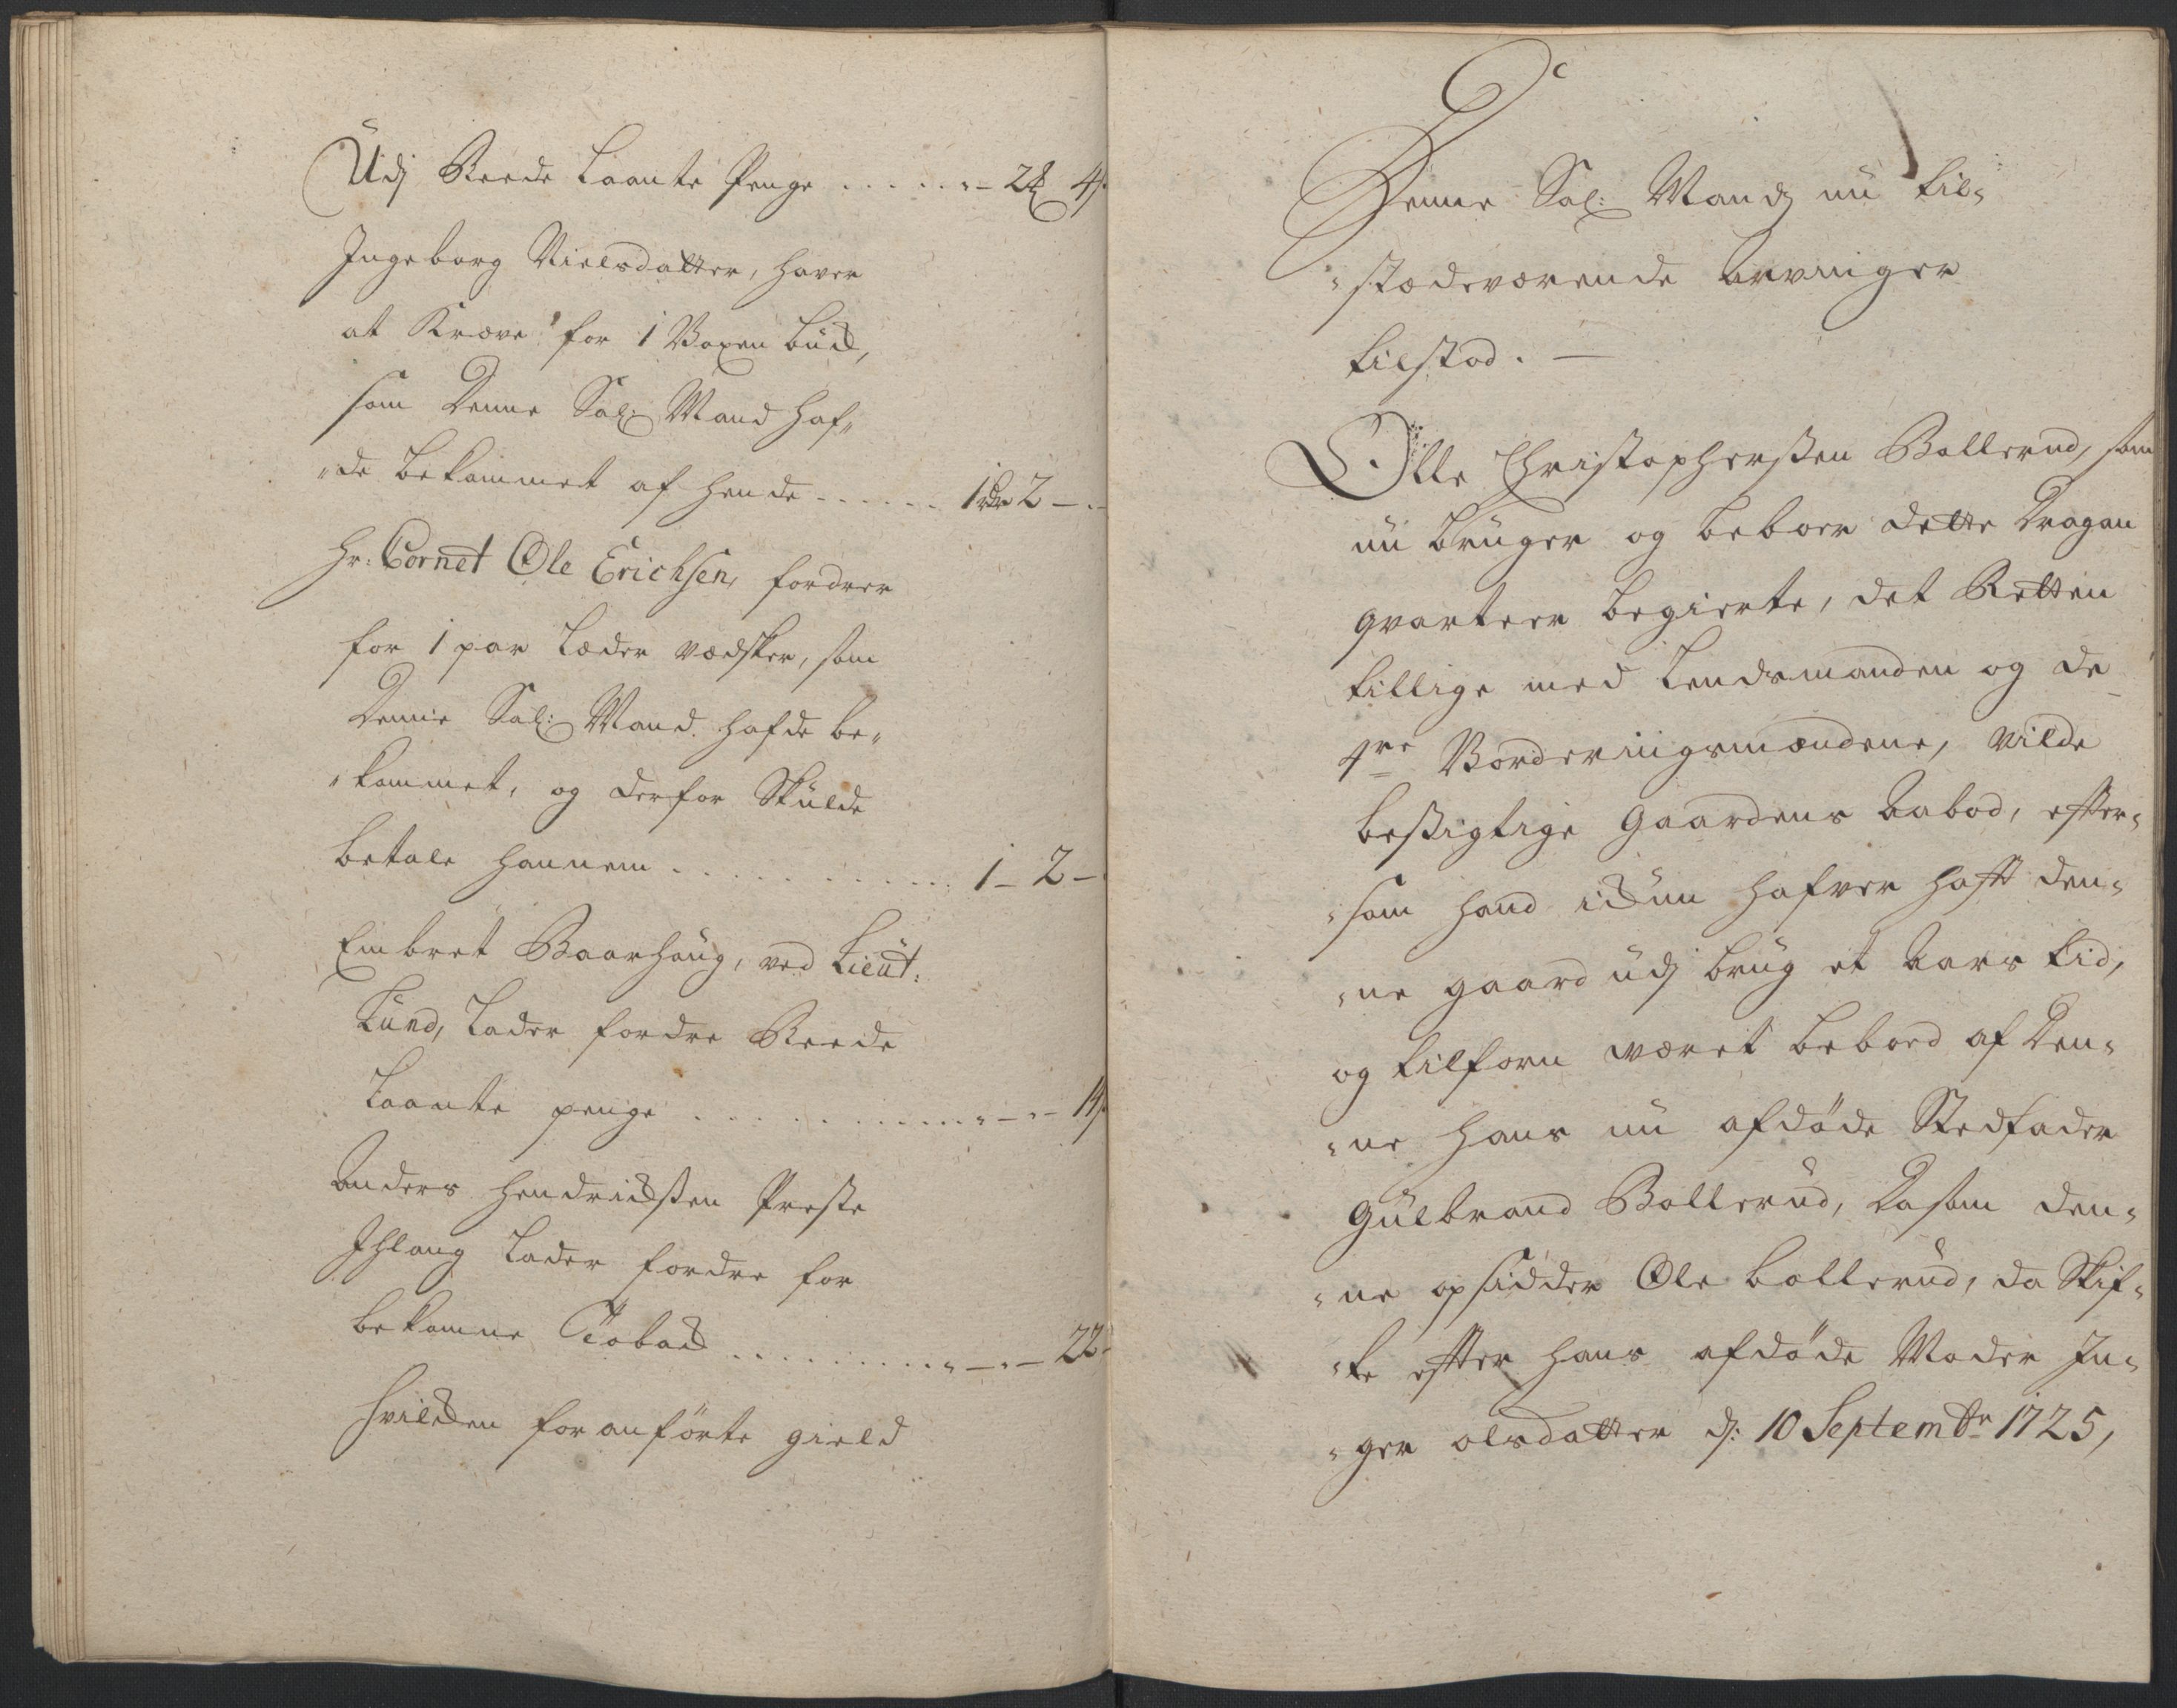 Udj Reede Laante Penge ..... „ – 2 4
Ingeborg Nielsdatter, haver
at Kræve for 1 Voxen Buck,
som Denne Sal: Mand haf„
„de bekommet af hende ...... 1 rdr 2 – „ –
Hr: Cornet Ole Erichsen, fordrer
for 1 par Læder Vedsker, som
Denne Sal: Mand hafde be„
„kommet, og derfor Skulde
betale hannem ............ 1 – 2 –
Embret Baarhaug, ved Lieut:
Lund, Lader fordre Reede
Laante penge ............ „ – „ – 14
Anders Hendrichsen Præste
Lader fordre for
bekomne Tobach ......... „ – „ – 22
Hvilcken foranførte gield
Denne Sal: Mands nu til„
„stædeværende Arvinger
tilstod. –
Olle Christophersen Bollerud, som
nu bruger og beboer dette Dragon
qvarteer begierte, det Retten
tillige med Lendsmanden og de
4re Vorderingsmændene, vilde
besigtige Gaardens Aabod, efter„
„som hand ickun hafver haft den„
„ne gaard udj brug et Aars tid,
og tilforn været beboed af Den„
„ne hans nu afdøde Stedfader
Gulbrand Bollerud, Dasom den„
„ne opsidder Ole Bollerud, da Skif„
„te efter hans afdøde Moder In„
„ger olsdatter d: 10 Septembr 1725,